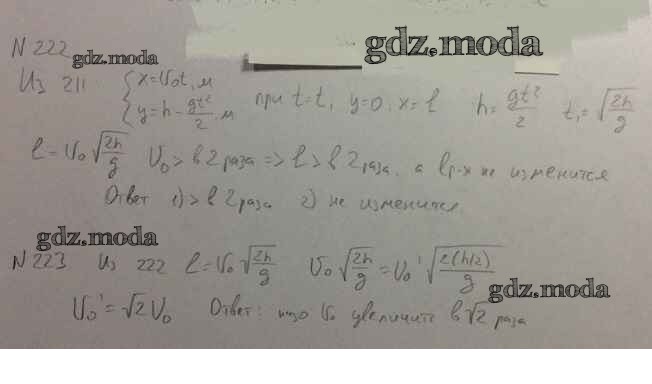 N 222
gdz.moda
gdz.moda
Из 211 { x=υ₀t, м
y=h-gt²/2, м при t=t₁ y=0, x=l h=gt²/2 t₁=√(2h/g)
l=υ₀√(2h/g) υ₀> в 2 раза => l> в 2 раза, а не изменится
Ответ 1) > в 2 раза 2) не изменится.
gdz.moda
N 223 Из 222 l=υ₀√(2h/g) υ₀√(2h/g)=υ₀'√(2(h/2)/g)
gdz.moda
υ₀'=√2 υ₀ Ответ: υ₀ увеличить в √2 раза